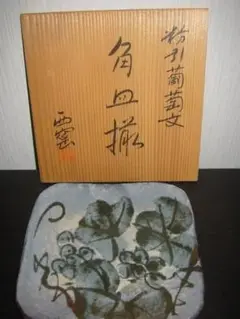 粉引葡萄文
角皿揃
西窯